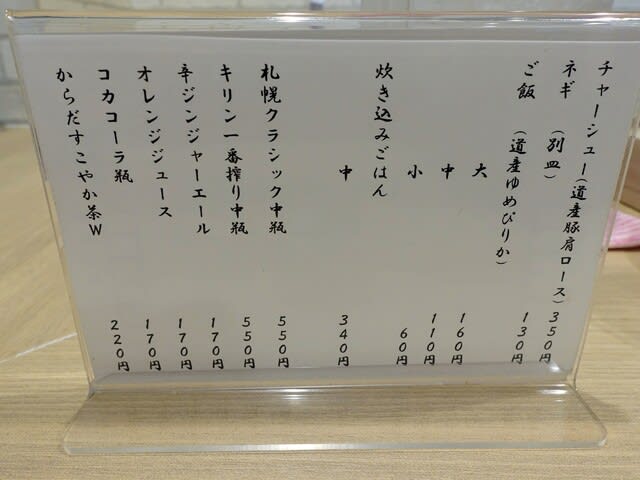 チャーシュー(道産豚肩ロース) 350円
ネギ (別皿) 130円
ご飯 (道産ゆめぴりか)
大 160円
中 110円
小 60円
炊き込みごはん
中 340円
札幌クラシック中瓶 550円
キリン一番搾り中瓶 550円
辛ジンジャーエール 170円
オレンジジュース 170円
コカコーラ瓶 170円
からだすこやか茶W 220円